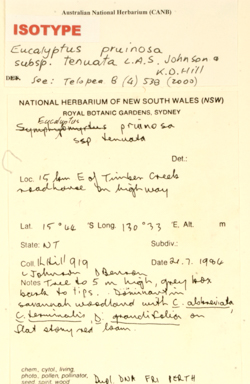 Australian National Herbarium (CANB)
ISOTYPE
Eucalyptus pruinosa
subsp. tenuata L.A.S. Johnson &
K.D. Hill
DET. See: Telopea 8 (4) 578 (2000)
NATIONAL HERBARIUM OF NEW SOUTH WALES (NSW)
ROYAL BOTANIC GARDENS, SYDNEY
Eucalyptus
Symphyomyrtus pruinosa
ssp tenuata
Det.:
Loc. 15 km E of Timber Creek
roadhouse on highway
Lat. 15° 42' S Long. 130° 33' E. Alt. m
State: NT Subdiv.:
Coll. K. Hill 919 Date 21.7.1984
L Johnson D Benson
Notes Tree to 5 m high, grey box
bark to tips. Dominant in
savannah woodland with C. abbreviata
C. terminalis & grandifolia on
flat stony red loam.
chem, cytol, living,
photo, pollen, pollinator,
seed, spirit, wood
Dupl. DNA FRI PERTH